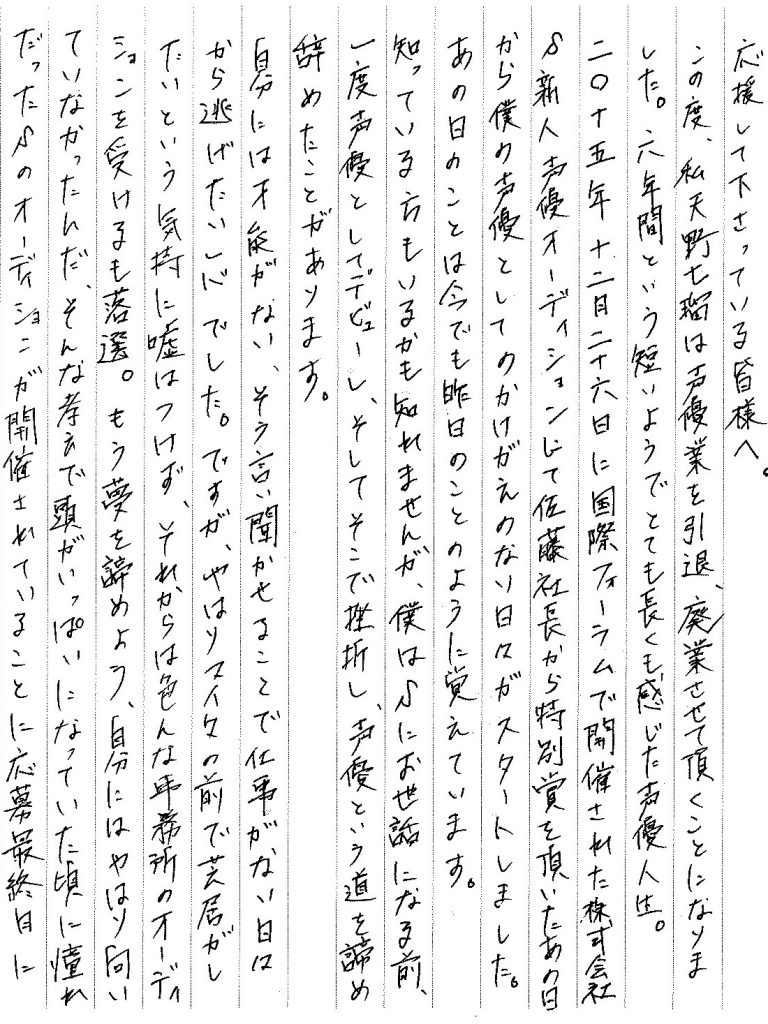 応援して下さっている皆様へ。
この度、私天野七瑠は声優業を引退、廃業させて頂くことになりま
した。六年間という短いようでとても長くも感じた声優人生。
二〇十五年十二月二十六日に国際フォーラムで開催された株式会社
S新人声優オーディションにて佐藤社長から特別賞を頂いたあの日
から僕の声優としてのかけがえのない日々がスタートしました。
あの日のことは今でも昨日のことのように覚えています。
知っている方もいるかも知れませんが、僕はSにお世話になる前、
一度声優としてデビューし、そしてそこで挫折し、声優という道を諦め
辞めたことがあります。
自分には才能がない、そう言い聞かせることで仕事がない日は
から逃げたい心でした。ですが、やはりマイクの前で芝居がし
たいという気持に嘘はつけず、それからは色んな事務所のオーディ
ションを受けるも落選。もう夢を諦めよう、自分にはやはり向い
ていなかったんだ、そんな考えで頭がいっぱいになっていた頃に憧れ
だったSのオーディションが開催されていることに応募最終日に